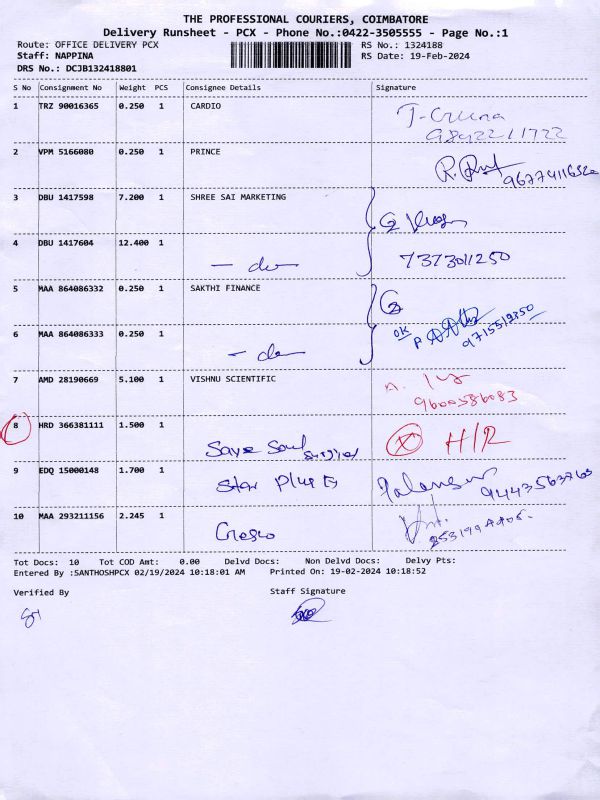 THE PROFESSIONAL COURIERS, COIMBATORE
Delivery Runsheet - PCX - Phone No.:0422-3505555 - Page No.:1
Route: OFFICE DELIVERY PCX RS No.: 1324188
Staff: NAPPINA RS Date: 19-Feb-2024
DRS No.: DCJB132418801
S No Consignment No Weight PCS Consignee Details Signature
1 TRZ 90016365 0.250 1 CARDIO
9842211722
2 VPM 5166080 0.250 1 PRINCE
3 DBU 1417598 7.200 1 SHREE SAI MARKETING
4 DBU 1417604 12.400 1 - do - 7373011250
5 MAA 864086332 0.250 1 SAKTHI FINANCE
OK
6 MAA 864086333 0.250 1 - do -
7 AMD 28190669 5.100 1 VISHNU SCIENTIFIC
9600586083
8 HRD 366381111 1.500 1 Save Soul H/R
9 EDQ 15000148 1.700 1 Star 9443563763
10 MAA 293211156 2.245 1 Cresco
Tot Docs: 10 Tot COD Amt: 0.00 Delvd Docs: Non Delvd Docs: Delvy Pts:
Entered By :SANTHOSHPCX 02/19/2024 10:18:01 AM Printed On: 19-02-2024 10:18:52
Verified By Staff Signature